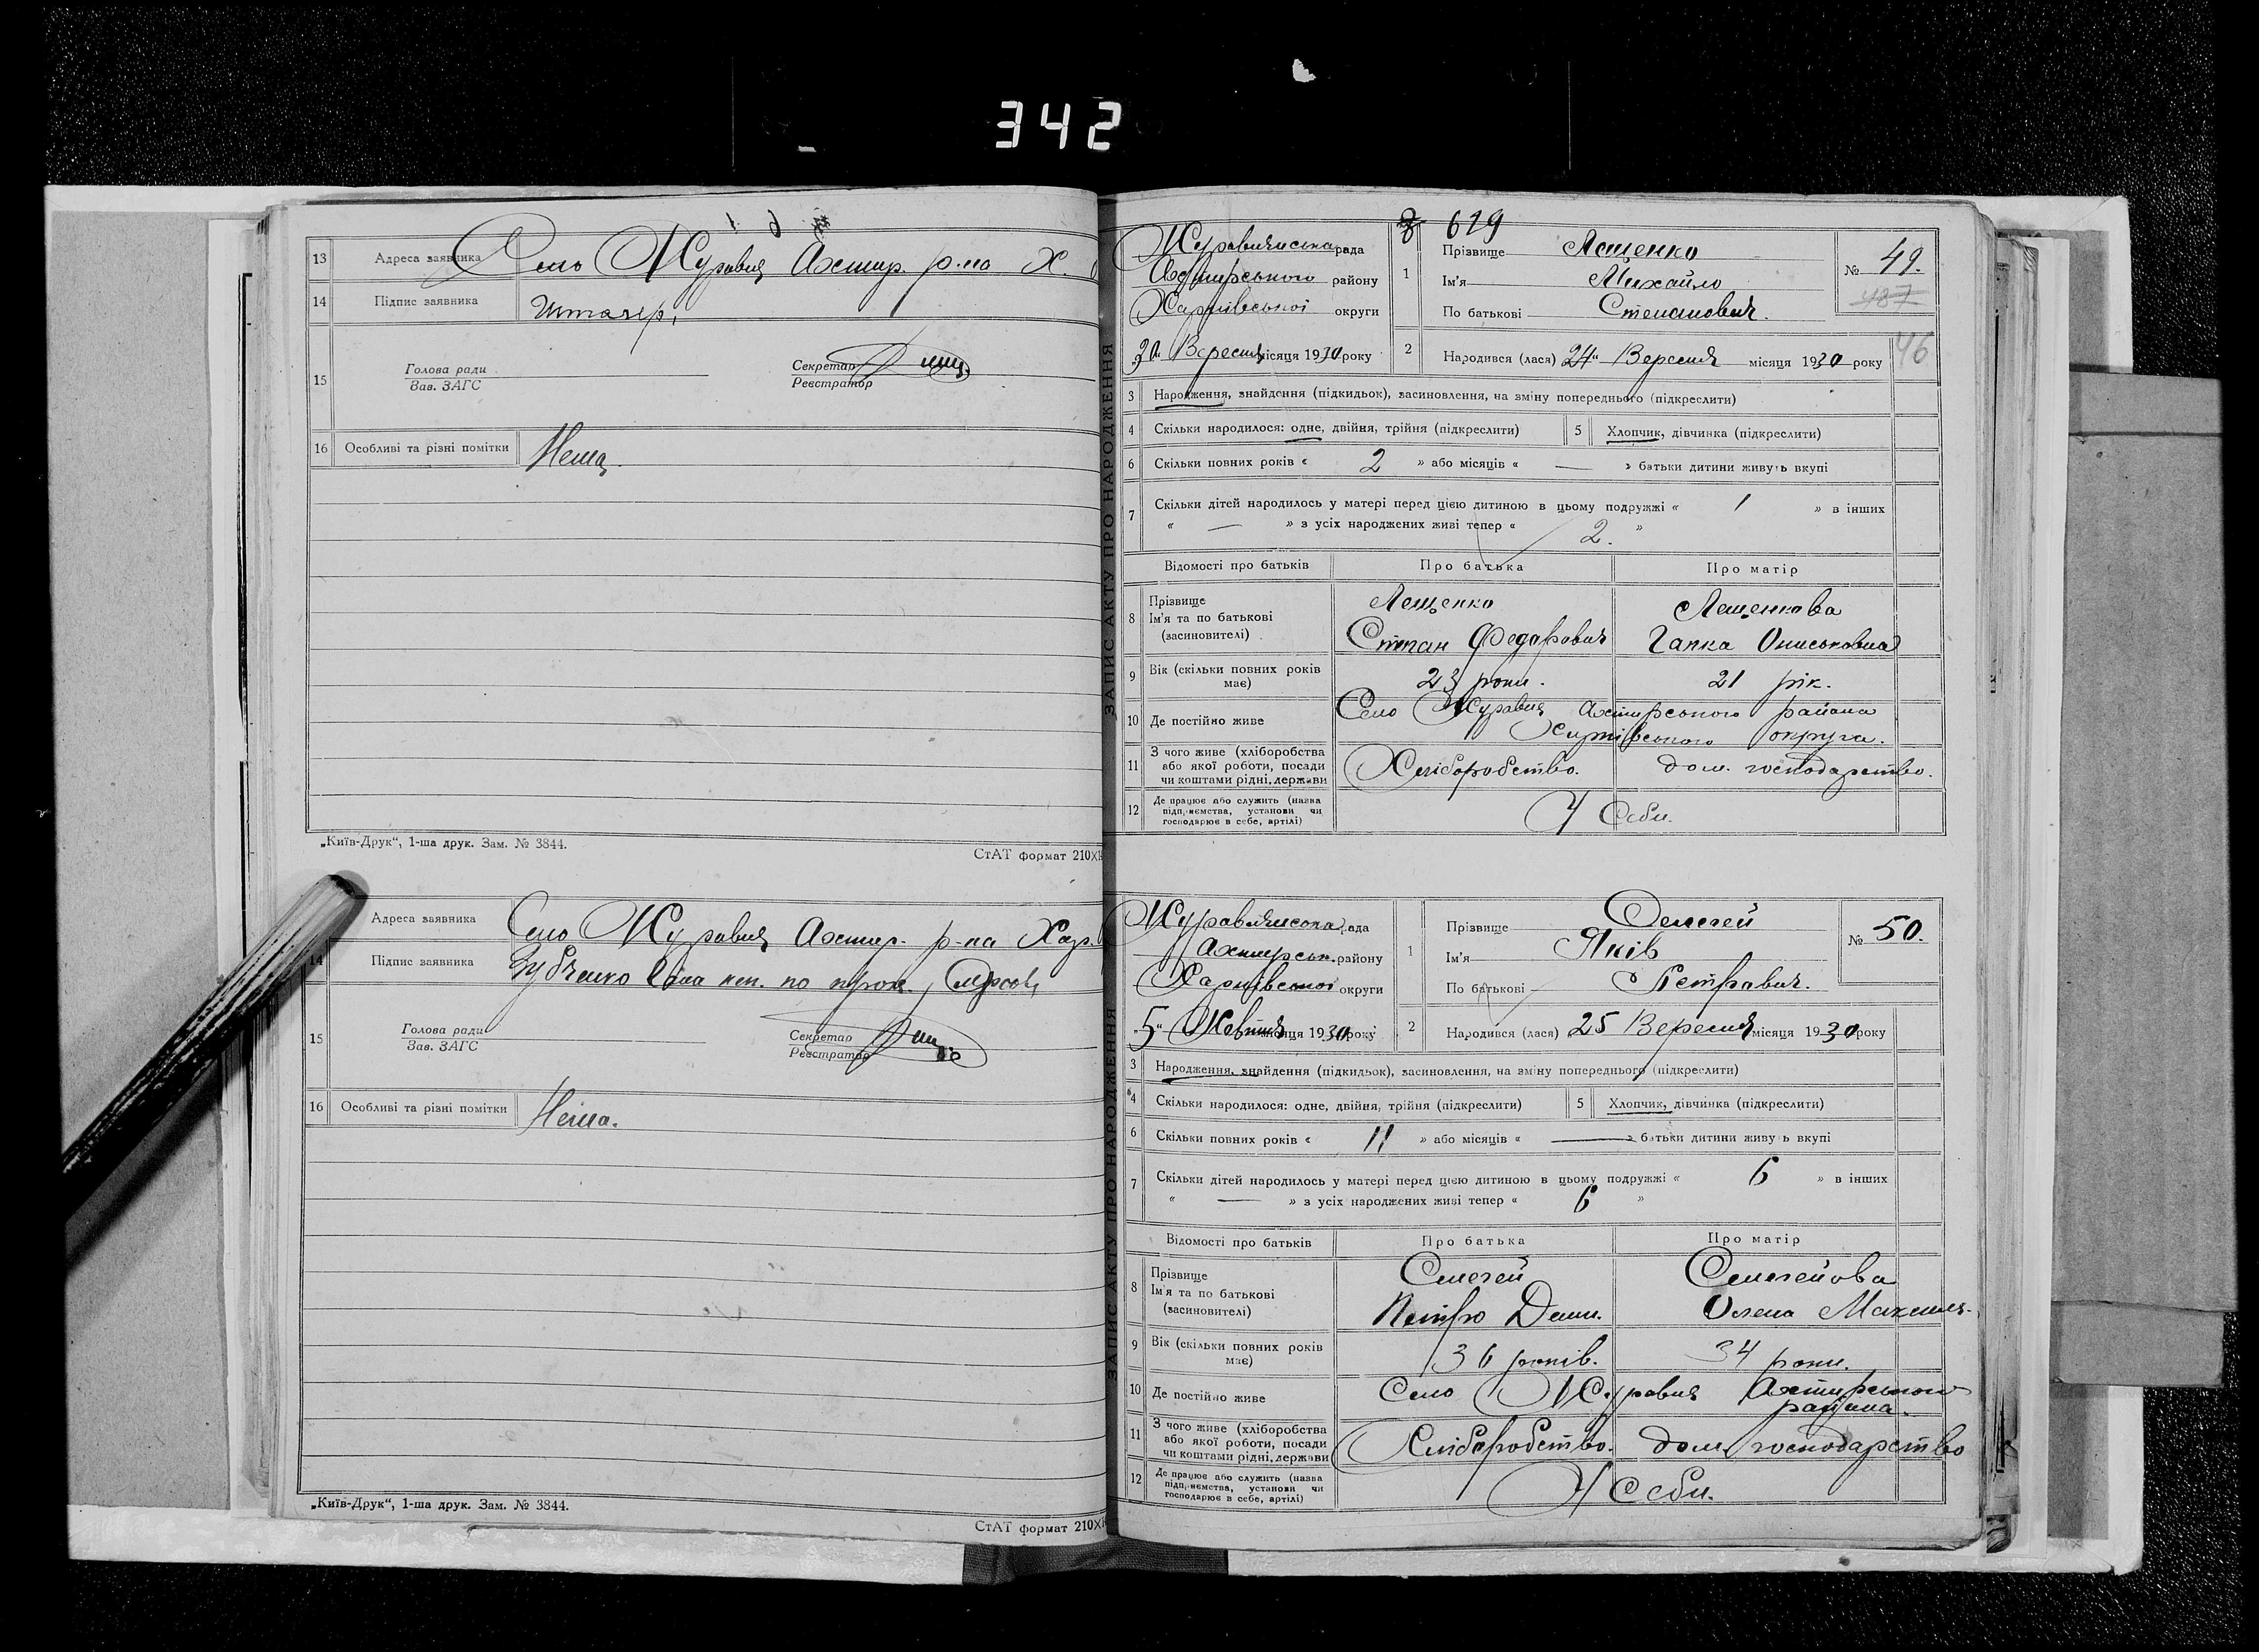 342
13 Адреса заявника Село Журавне Ахтир. р-на Х.
14 Підпис заявника
15 Голова ради
Зав. ЗАГС
Секретар
Реєстратор
16 Особливі та різні помітки Нема.
„Київ-Друк“, 1-ша друк. Зам. № 3844.
СтАТ формат 210Х
Адреса заявника Село Журавне Ахтир. р-на Хар.
14 Підпис заявника
15 Голова ради
Зав. ЗАГС
Секретар
Реєстратор
16 Особливі та різні помітки Нема.
„Київ-Друк“, 1-ша друк. Зам. № 3844.
СтАТ формат 210Х
ЗАПИС АКТУ ПРО НАРОДЖЕННЯ
619
рада
Ахтирського району
Харківської округи
30 Вересня місяця 1930 року
1 Прізвище Лещенко
Ім'я Михайло
По батькові Степанович.
№ 49.
487
46
2 Народився (лася) 24 Вересня місяця 1930 року
3 Народження, знайдення (підкидьок), засиновлення, на зміну попереднього (підкреслити)
4 Скільки народилося: одне, двійня, трійня (підкреслити) 5 Хлопчик, дівчинка (підкреслити)
6 Скільки повних років « 2 » або місяців « — » батьки дитини живуть вкупі
7 Скільки дітей народилось у матері перед цією дитиною в цьому подружжі « 1 » в інших
« — » з усіх народжених живі тепер « 2. »
Відомості про батьків Про батька Про матір
8 Прізвище Лещенко Лещенкова
Ім'я та по батькові Степан Федарович Гапка Ониськовна
(засиновителі)
9 Вік (скільки повних років має) 23 роки. 21 рік.
10 Де постійно живе Село Журавне Ахтирського района
Харківського округа.
11 З чого живе (хліборобства
або якої роботи, посади Хліборобство. дом. господарство.
чи коштами рідні, держави
12 Де працює або служить (назва
підприємства, установи чи У Себи.
господарює в себе, артілі)
ЗАПИС АКТУ ПРО НАРОДЖЕННЯ
рада
Ахтирськ. району
Харківської округи
„5“ Жовтня місяця 1930 року
1 Прізвище Селегей
Ім'я Яків
По батькові Петравич.
№ 50.
2 Народився (лася) 25 Вересня місяця 1930 року
3 Народження, знайдення (підкидьок), засиновлення, на зміну попереднього (підкреслити)
4 Скільки народилося: одне, двійня, трійня (підкреслити) 5 Хлопчик, дівчинка (підкреслити)
6 Скільки повних років « 11 » або місяців « — » батьки дитини живуть вкупі
7 Скільки дітей народилось у матері перед цією дитиною в цьому подружжі « 6 » в інших
« — » з усіх народжених живі тепер « 6 »
Відомості про батьків Про батька Про матір
8 Прізвище Селегей Селегейова
Ім'я та по батькові Петро Деми. Олена Максим.
(засиновителі)
9 Вік (скільки повних років має) 36 років. 34 роки.
10 Де постійно живе Село Журавне Ахтирського
района.
11 З чого живе (хліборобства
або якої роботи, посади Хліборобство. дом. господарство
чи коштами рідні, держави
12 Де працює або служить (назва
підприємства, установи чи У Себи.
господарює в себе, артілі)